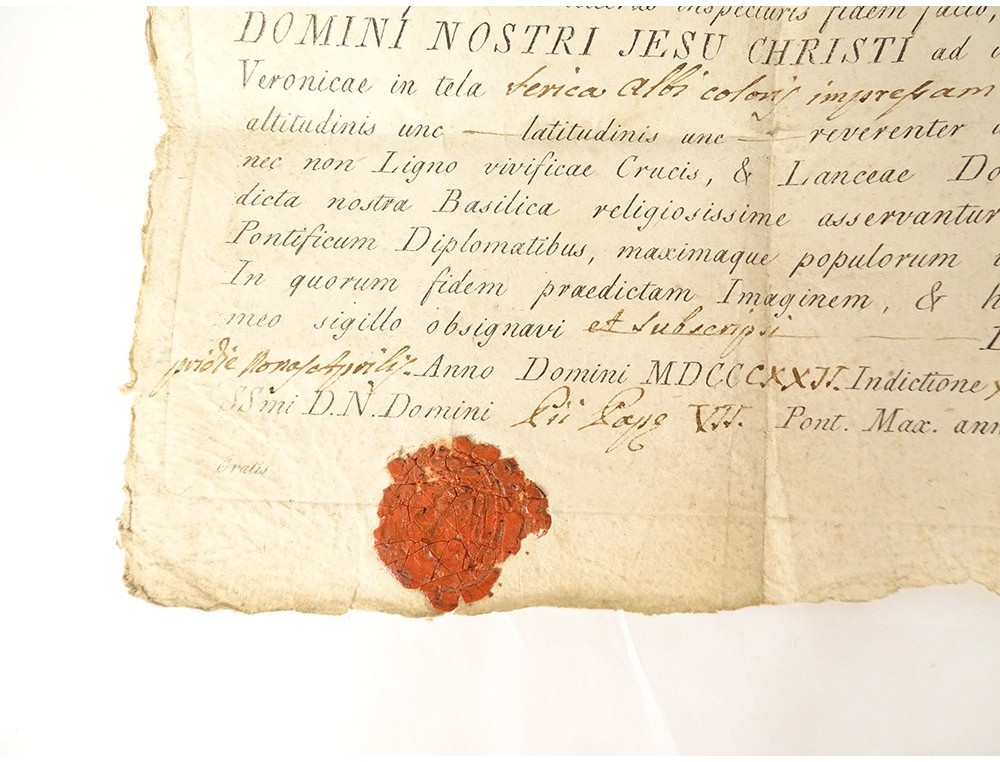 inspecturis fidem facio,
DOMINI NOSTRI JESU CHRISTI ad
Veronicae in tela serica albi coloris impressam
altitudinis unc — latitudinis unc — reverenter
nec non Ligno vivificae Crucis, & Lanceae Do
dicta nostra Basilica religiosissime asservantur
Pontificum Diplomatibus, maximaque populorum
In quorum fidem praedictam Imaginem, & h
meo sigillo obsignavi et subscripsi
pridie Nonas Aprilis. Anno Domini MDCCCXXII. Indictione
SSmi D.N. Domini Pii Papę VII. Pont. Max. ann
Gratis